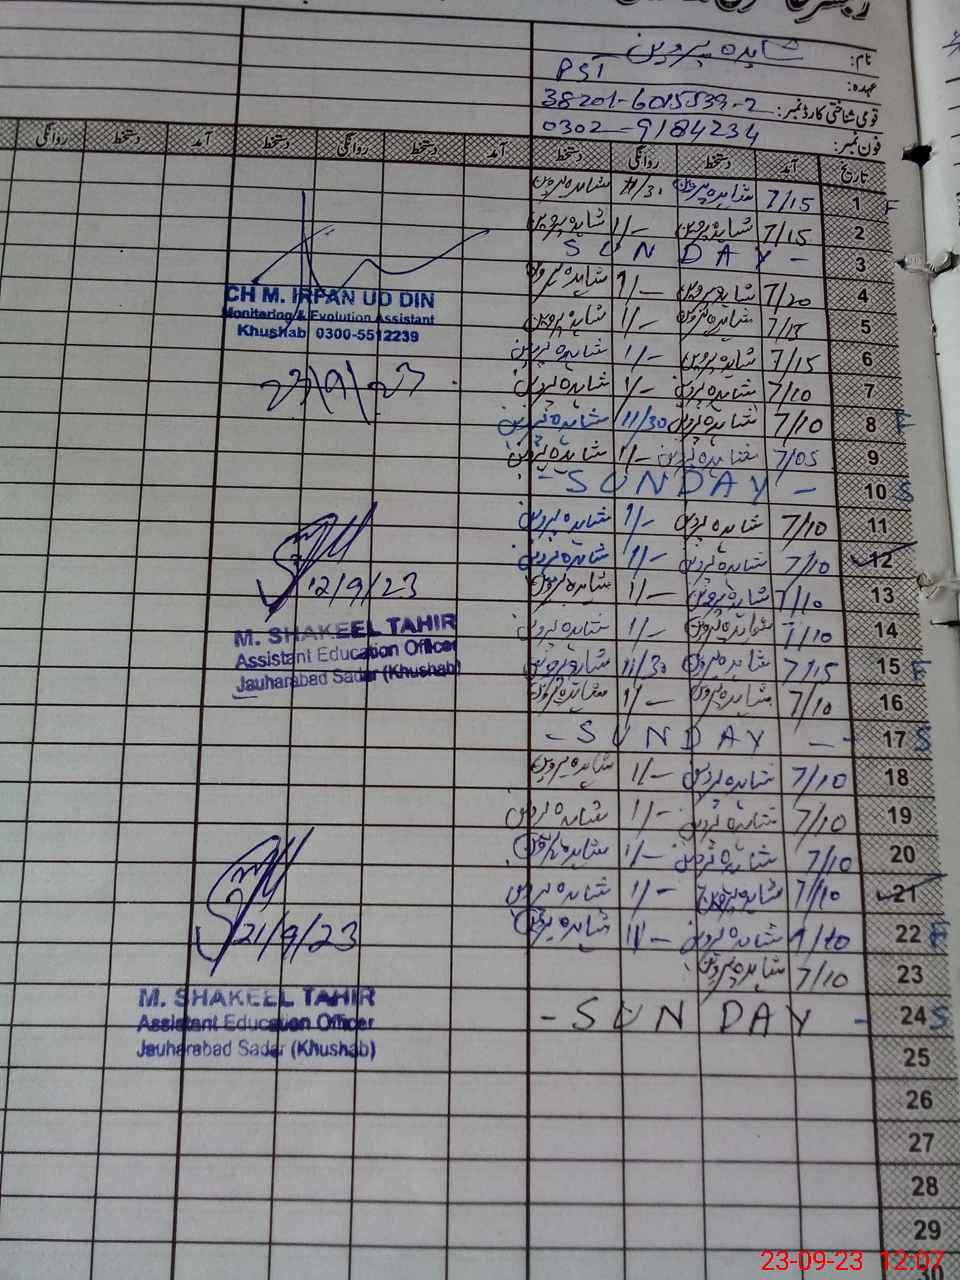 نام: شاہدہ پروین
عہدہ: PST
قومی شناختی کارڈ نمبر: 38201-6015539-2
فون نمبر: 0302-9184234
تاریخ آمد دستخط روانگی دستخط آمد دستخط روانگی دستخط آمد دستخط روانگی
1 7/15 شاہدہ پروین 11/30 شاہدہ پروین F
2 7/15 شاہدہ پروین 1/- شاہدہ پروین
3 SUNDAY -
4 7/20 شاہدہ پروین 1/- شاہدہ پروین
5 شاہدہ پروین 1/- شاہدہ پروین
6 7/15 شاہدہ پروین 1/- شاہدہ پروین
7 7/10 شاہدہ پروین 1/- شاہدہ پروین
8 7/10 شاہدہ پروین 11/30 شاہدہ پروین F
9 7/05 شاہدہ پروین 1/- شاہدہ پروین
10 - SUNDAY - S
11 7/10 شاہدہ پروین 1/- شاہدہ پروین
12 7/10 شاہدہ پروین 1/- شاہدہ پروین
13 7/10 شاہدہ پروین 1/- شاہدہ پروین
14 7/10 شاہدہ پروین 1/- شاہدہ پروین
15 7/15 شاہدہ پروین 11/30 شاہدہ پروین F
16 7/10 شاہدہ پروین 1/- شاہدہ پروین
17 - SUNDAY -- S
18 7/10 شاہدہ پروین 1/- شاہدہ پروین
19 7/10 شاہدہ پروین 1/- شاہدہ پروین
20 7/10 شاہدہ پروین 1/- شاہدہ پروین
21 7/10 شاہدہ پروین 1/- شاہدہ پروین
22 شاہدہ پروین شاہدہ پروین F
23 7/10 شاہدہ پروین
24 - SUNDAY - S
25
26
27
28
29
30
CH M. IRFAN UD DIN
Monitering & Evolution Assistant
Khushab 0300-5512239
23/9/23
12/9/23
M. SHAKEEL TAHIR
Assistant Education Officer
Jauharabad Sadar (Khushab)
21/9/23
M. SHAKEEL TAHIR
Assistant Education Officer
Jauharabad Sadar (Khushab)
23-09-23 12:07